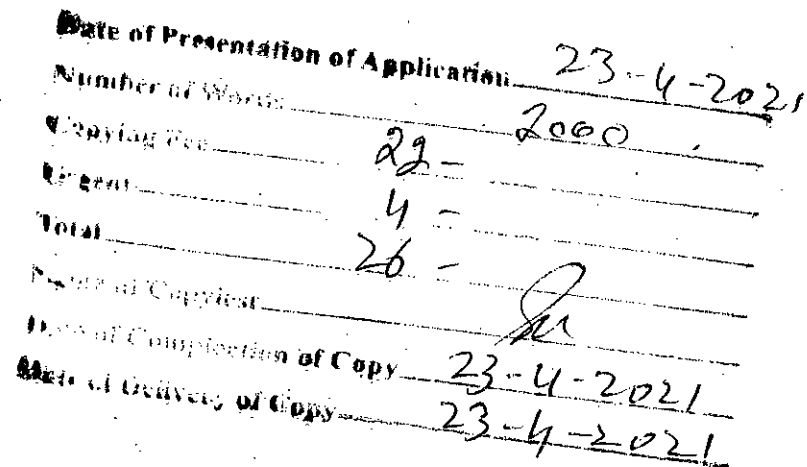 Date of Presentation of Application 23-4-2021
Number of Words 2000
Copying Fee 22-
Urgent 4-
Total 26-
Name of Copyiest
Date of Complection of Copy 23-4-2021
Date of Delivery of Copy 23-4-2021